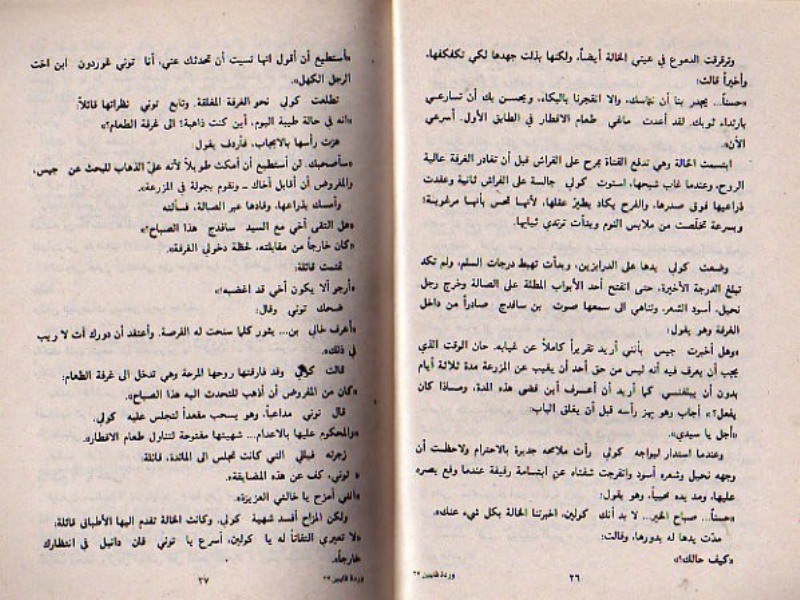 وترقرقت الدموع في عيني الخالة أيضاً، ولكنها بذلت جهدها لكي تكفكفها،
وأخيراً قالت:
«حسناً... يجدر بنا أن نتماسك، والا انفجرنا بالبكاء، ويحسن بك أن تسارعي
بارتداء ثوبك. لقد أعدت ماغي طعام الافطار في الطابق الأول. أسرعي
الآن».
ابتسمت الخالة وهي تدفع الفتاة بمرح على الفراش قبل أن تغادر الغرفة عالية
الروح، وعندما غاب شبحها، استوت كولي جالسة على الفراش ثانية وعقدت
ذراعيها فوق صدرها، والفرح يكاد يطير عقلها، لأنها تحس بأنها مرغوبة؛
وبسرعة تخلّصت من ملابس النوم وبدأت ترتدي ثيابها.
وضعت كولي يدها على الدرابزين، وبدأت تهبط درجات السلم، ولم تكد
تبلغ الدرجة الأخيرة، حتى انفتح أحد الأبواب المطلة على الصالة وخرج رجل
نحيل، أسود الشعر، وتناهى الى سمعها صوت بن سافدج صادراً من داخل
الغرفة وهو يقول:
«وهل أخبرت جيس بأنني أريد تقريراً كاملاً عن غيابه. حان الوقت الذي
يجب أن يعرف فيه أنه ليس من حق أحد أن يغيب عن المزرعة مدة ثلاثة أيام
بدون أن يبلغني. كما أريد أن أعرف أين قضى هذه المدة، وماذا كان
يفعل؟» أجاب وهو يهز رأسه قبل أن يغلق الباب:
«أجل يا سيدي».
وعندما استدار ليواجه كولي رأت ملامحه جديرة بالاحترام ولاحظت أن
وجهه نحيل وشعره أسود وانفرجت شفتاه عن ابتسامة رقيقة عندما وقع بصره
عليها، ومد يده محيياً، وهو يقول:
«حسناً... صباح الخير... لا بد أنك كولين. اخبرتنا الخالة بكل شيء عنك».
مدّت يدها له بدورها، وقالت:
«كيف حالك؟»
٢٦
وردة قايين ٢٦
«أستطيع أن أقول انها نسيت أن تحدثك عني. أنا توني غوردون ابن اخت
الرجل الكهل».
تطلعت كولي نحو الغرفة المغلقة. وتابع توني نظراتها قائلاً:
«انه في حالة طيبة اليوم. أين كنت ذاهبة؟ الى غرفة الطعام؟»
هزت رأسها بالايجاب، فأردف يقول:
«سأصحبك. لن أستطيع أن أمكث طويلاً لأنه عليّ الذهاب للبحث عن جيس،
والمفروض أن أقابل أخاك ــ ونقوم بجولة في المزرعة».
وأمسك بذراعها، وقادها عبر الصالة، فسألته
«هل التقى أخي مع السيد سافدج هذا الصباح؟»
«كان خارجاً من مقابلته، لحظة دخولي الغرفة».
تمتمت قائلة:
«أرجو ألا يكون أخي قد اغضبه!»
ضحك توني وقال:
«أعرف خالي بن... يثور كلما سنحت له الفرصة. وأعتقد أن دورك آت لا ريب
في ذلك».
قالت كولي وقد فارقتها روحها المرحة وهي تدخل الى غرفة الطعام:
«كان من المفروض أن أذهب للتحدث اليه هذا الصباح».
قال توني مداعباً، وهو يسحب مقعداً لتجلس عليه كولي.
«والمحكوم عليها بالاعدام... شهيتها مفتوحة لتناول طعام الافطار».
زجرته التي كانت تجلس الى المائدة، قائلة:
« توني، كف عن هذه المضايقة».
«انني أمزح يا خالتي العزيزة»
ولكن المزاح أفسد شهية كولي. وكانت الخالة تقدم اليها الأطباق قائلة:
«لا تعيري التفاتاً له يا كولين. أسرع يا توني فان دانيل في انتظارك
خارجاً».
٢٧
وردة قايين ٢٧